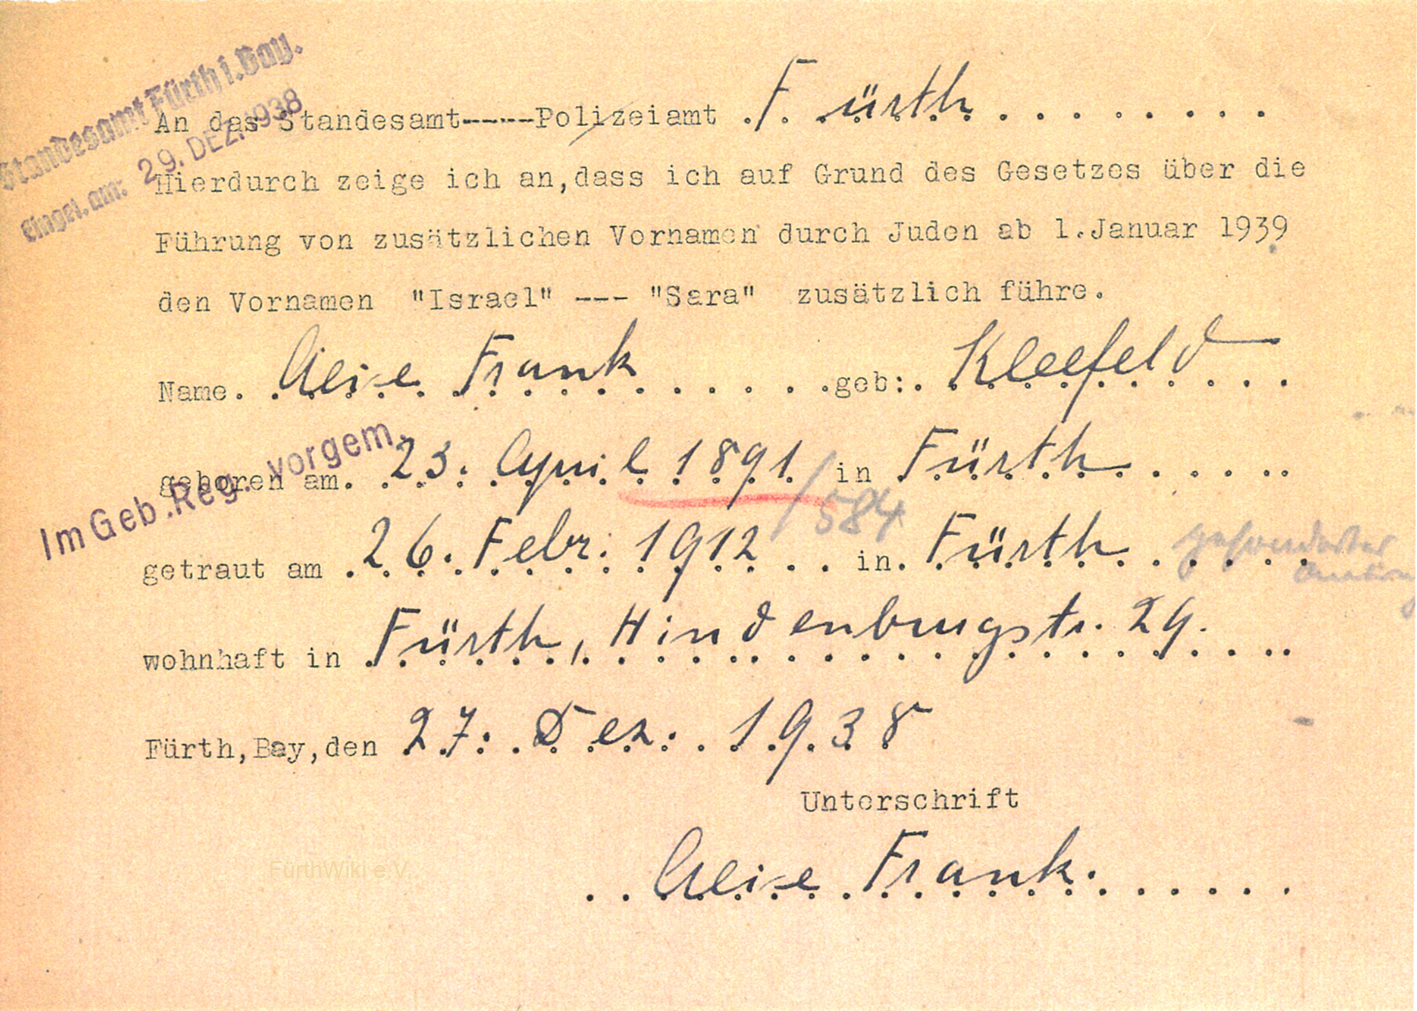 Standesamt Fürth i. Bay.
Eingel. am: 29. DEZ. 1938
An das Standesamt-----Polizeiamt Fürth
Hierdurch zeige ich an,dass ich auf Grund des Gesetzes über die
Führung von zusätzlichen Vornamen durch Juden ab 1.Januar 1939
den Vornamen "Israel" --- "Sara" zusätzlich führe.
Name. Frank geb: Kleefeld
Im Geb. Reg. vorgem.
geboren am. 23. April 1891 in Fürth
/584
getraut am 26. Febr. 1912 in. Fürth
gesonderter
wohnhaft in Fürth, Hindenburgstr. 29.
Fürth,Bay,den 27. Dez. 1938
Unterschrift
Frank.
FürthWiki e.V.